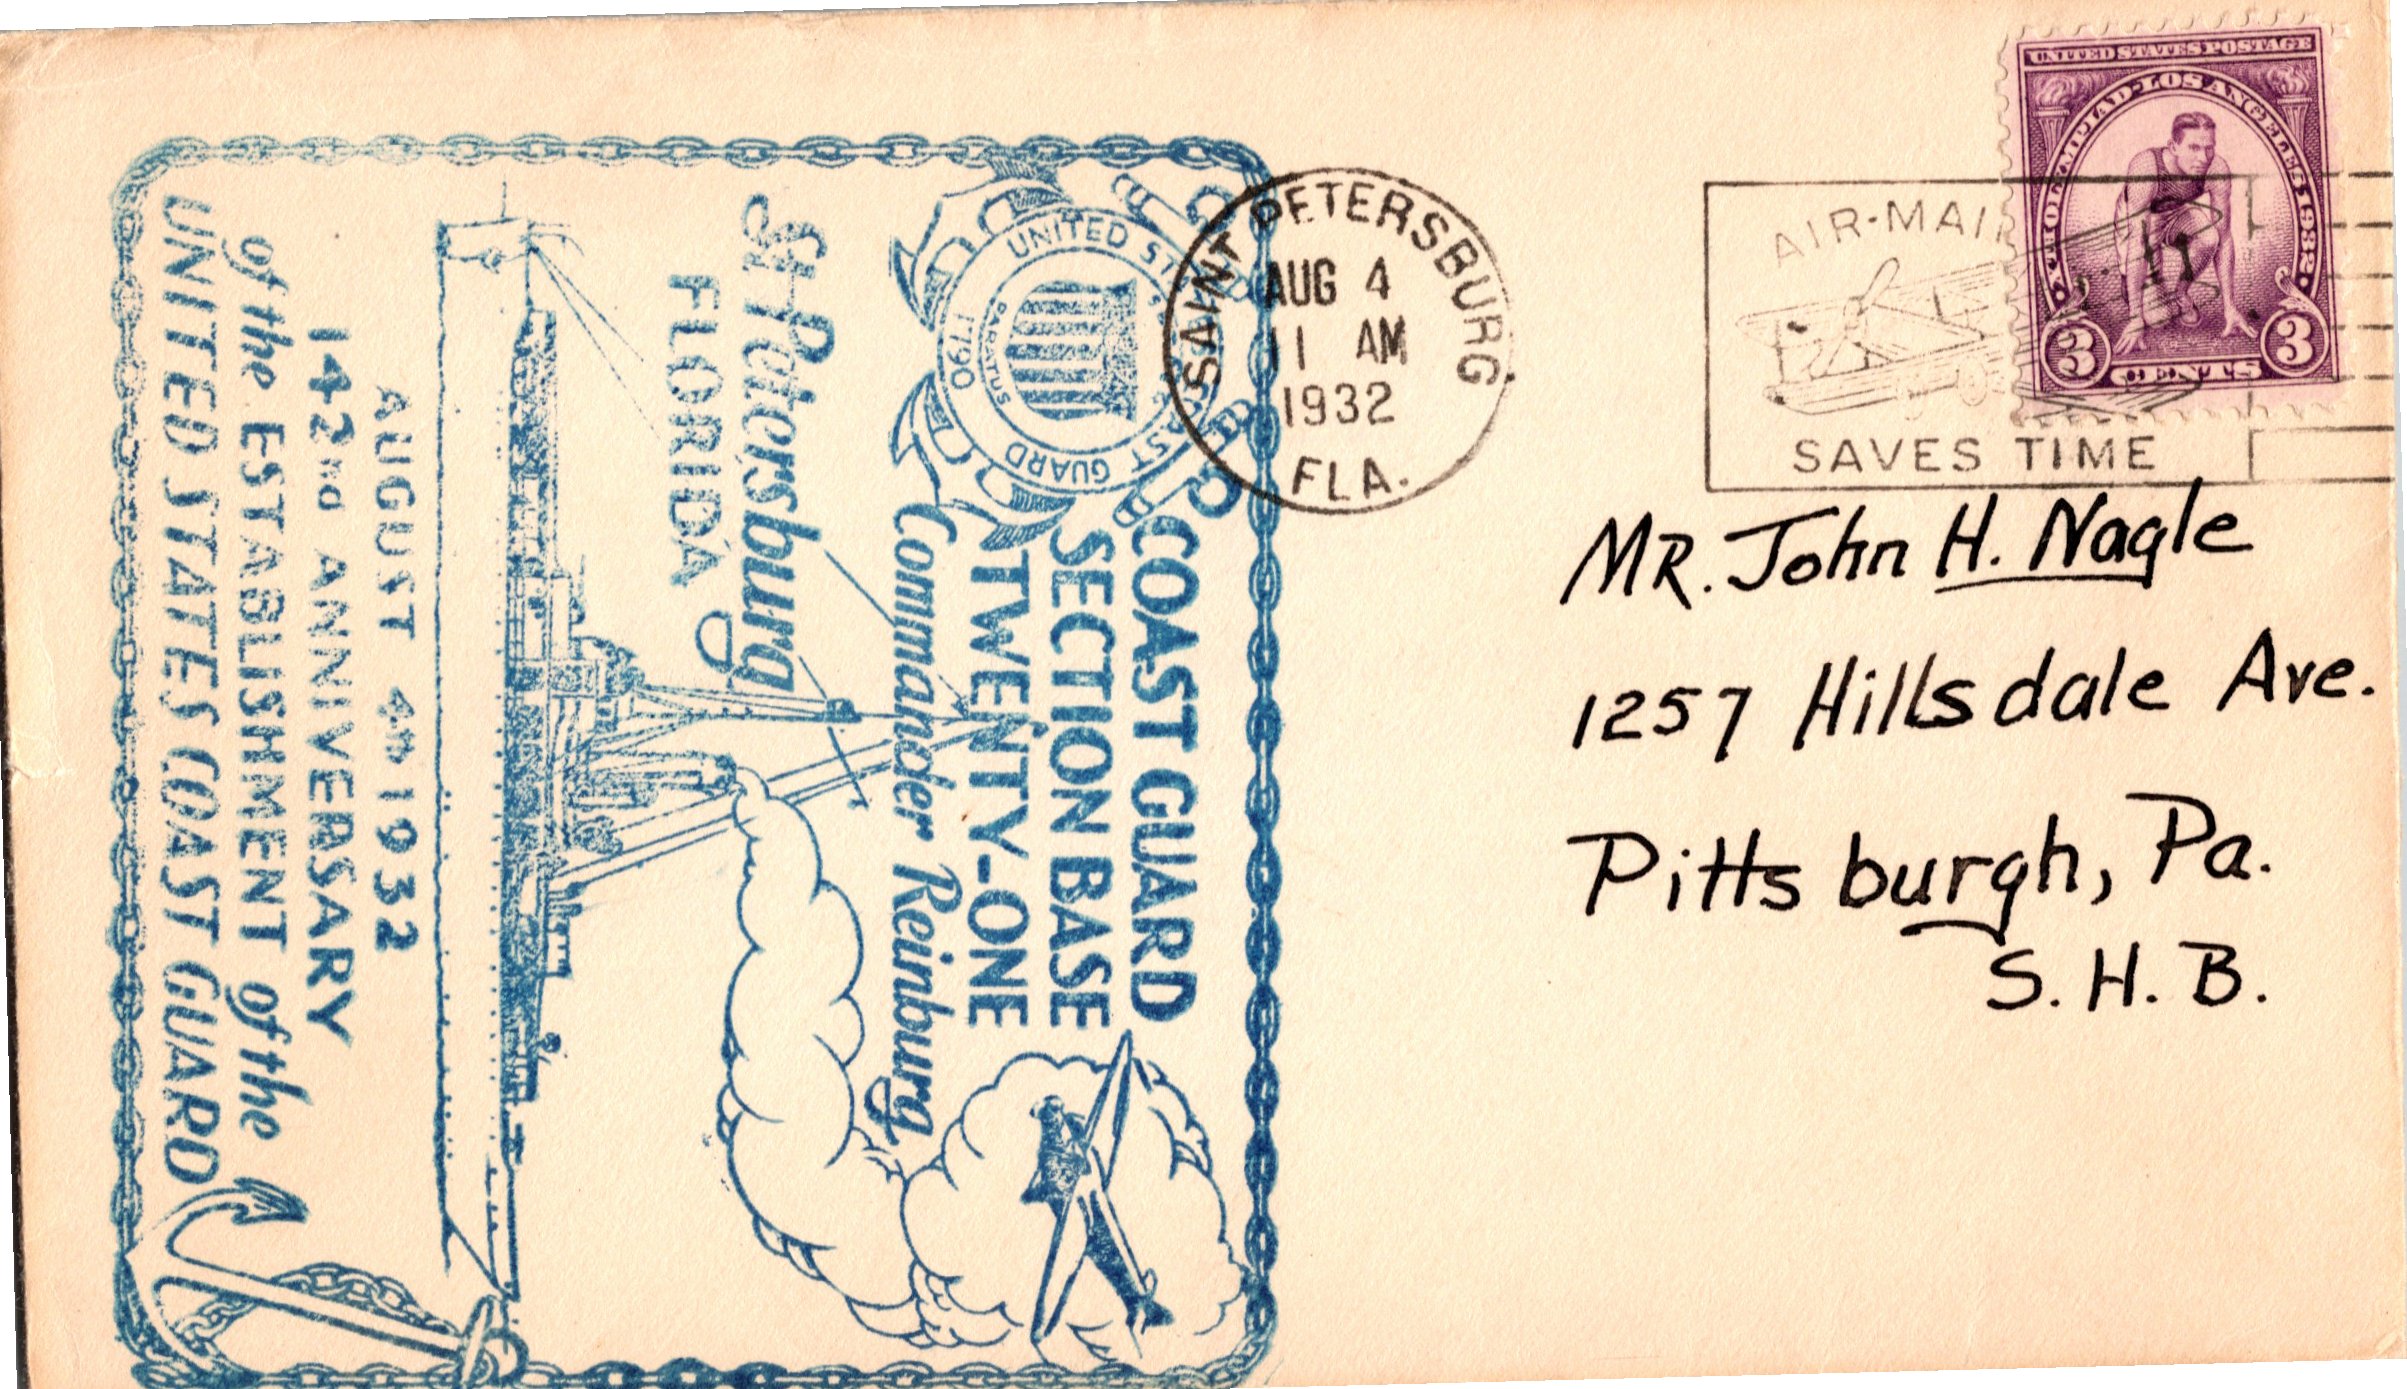 COAST GUARD
SECTION BASE
TWENTY-ONE
Commander Reinburg
UNITED STATES COAST GUARD
1790
PARATUS
St Petersburg
FLORIDA
AUGUST 4TH 1932
142ND ANNIVERSARY
of the ESTABLISHMENT of the
UNITED STATES COAST GUARD
SAINT PETERSBURG
AUG 4
11 AM
1932
FLA.
AIR-MAIL
SAVES TIME
UNITED STATES POSTAGE
OLYMPIAD LOS ANGELES 1932
3 3
CENTS
MR. John H. Nagle
1257 Hillsdale Ave.
Pittsburgh, Pa.
S. H. B.